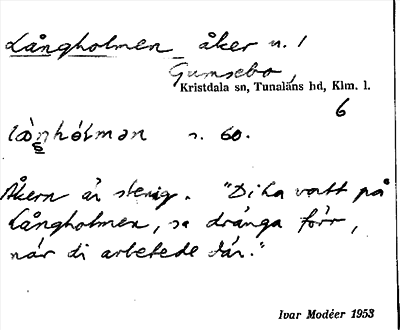 Långholmen åker n. 1
Gumsebo
Kristdala sn, Tunaläns hd, Klm. l.
6
s. 60.
Åkern är stenig. "Di ha vatt på
Långholmen, sa dränga förr,
när di arbetede där."
Ivar Modéer 1953